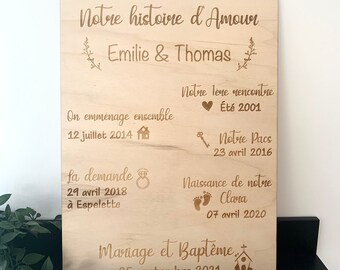 Notre histoire d'Amour
Emilie & Thomas
Notre 1ère rencontre
Été 2001
On emménage ensemble
12 juillet 2014
Notre Pacs
23 avril 2016
La demande
29 avril 2018
à Espelette
Naissance de notre
Clara
07 avril 2020
Mariage et Baptême
2021